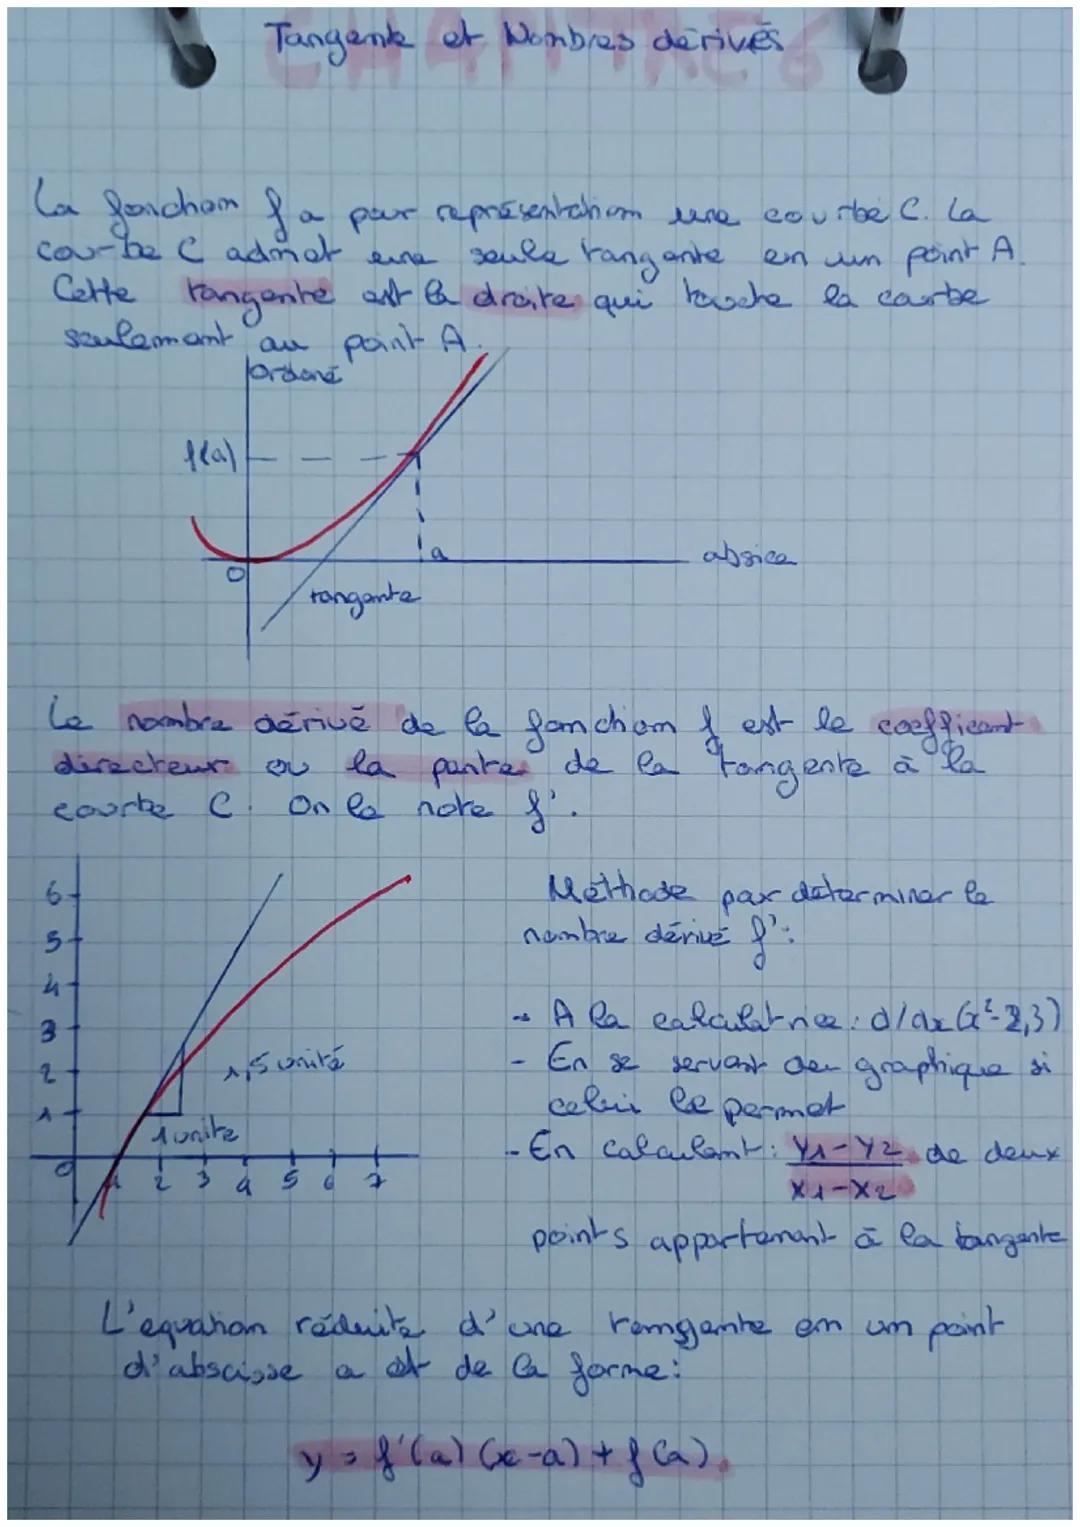 Tangente et Nombres dérivés
CHAPITRE 6
La fonction f a pour représentation une courbe C. La
courbe C admet une seule tangente en un point A.
Cette tangente est la droite qui touche la courbe
seulement au point A.
ordoné
f(a)
a
absice
0
tangente
Le nombre dérivé de la fonction f est le coefficent
directeur ou la pente de la tangente à la
courbe C. On le note f'.
6
5
4
3
2
1
0
1 2 3 4 5 6 7
1,5 unité
1 unité
Méthode pour déterminer le
nombre dérivé f':
- A la calculatrice: d/dx(x²-2,3)
- En se servant du graphique si
celui le permet
- En calculant: Y1-Y2 de deux
X1-X2
points appartenant à la tangente
L'equation réduite d'une tangente en un point
d'abscisse a est de la forme:
y = f'(a) (x-a) + f(a).